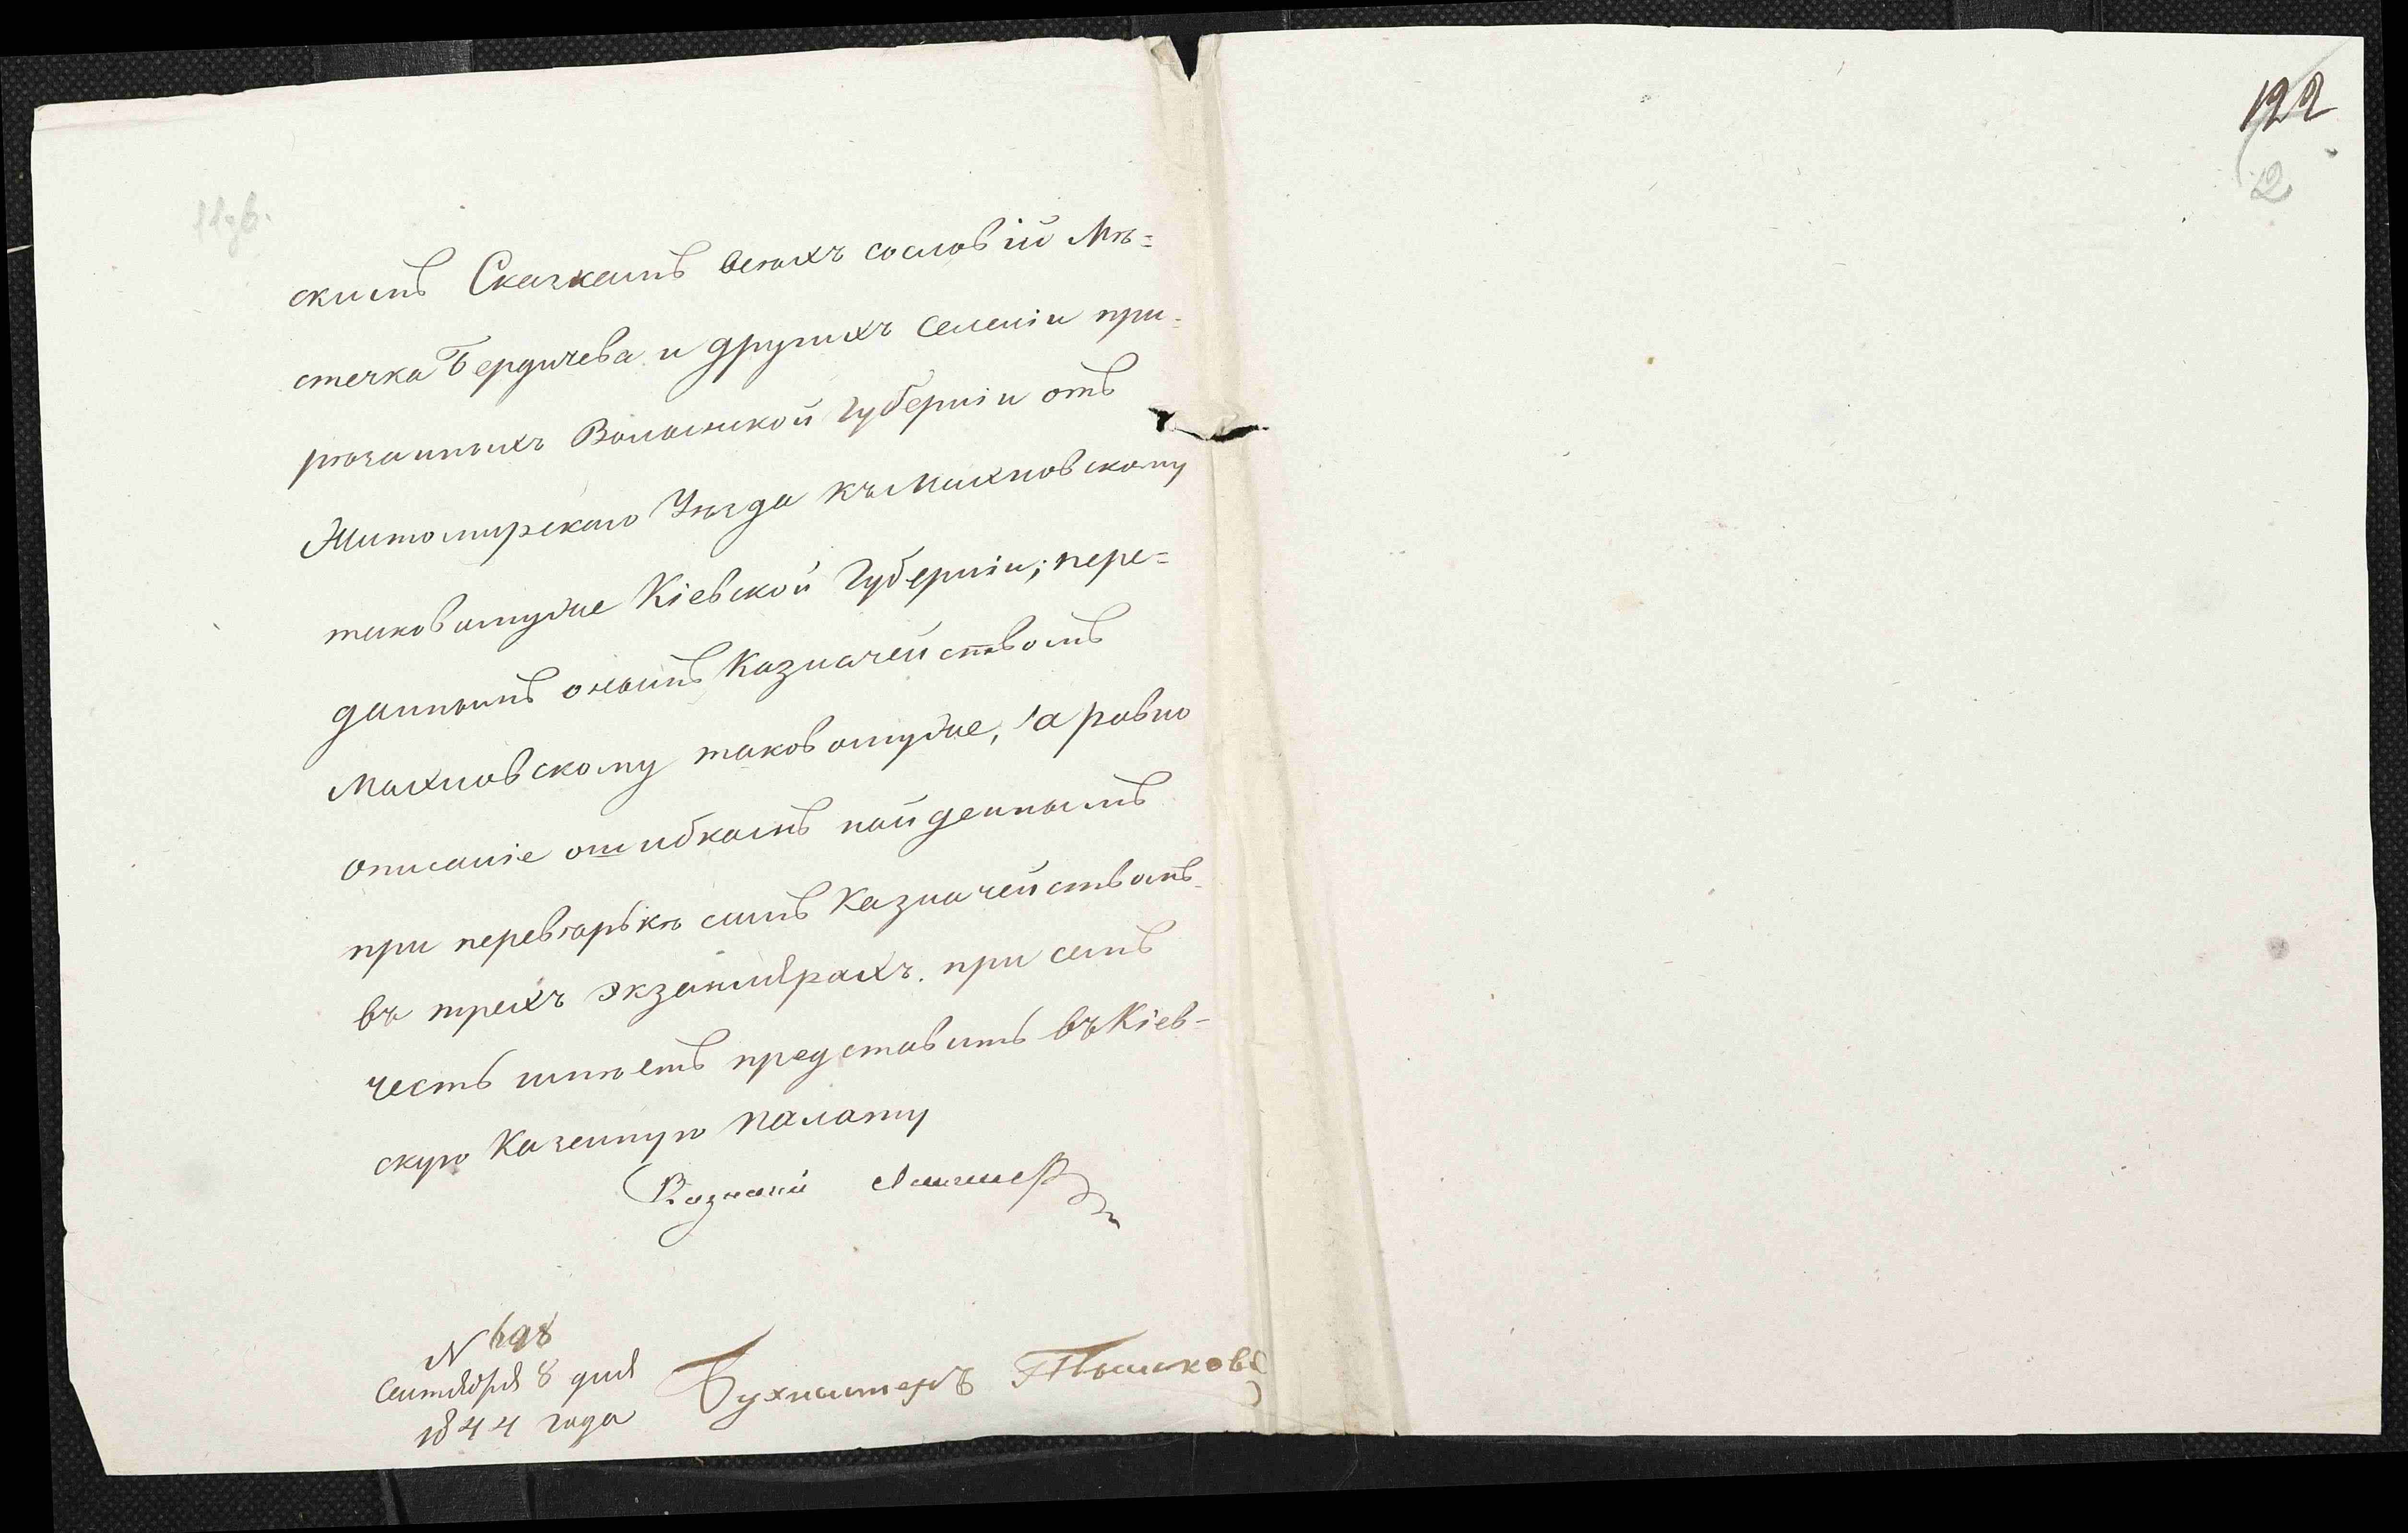 122
2
скимъ Сказкамъ всѣхъ сословій Мѣ=
стечка Бердичева и другихъ селеніи при=
рѣзанныхъ Волынской Губерніи отъ
Житомирскаго Уѣзда къ Махновскому
таковомуже Кіевской Губерніи; пере=
даннымъ онымъ Казначействомъ
Махновскому таковомуже, а равно
описаніе ошибкамъ найденнымъ
при перевѣркѣ симъ Казначействомъ
въ трехъ экземплярахъ при семъ
честь имѣетъ представить въ Кіев-
скую Казенную Палату
Казначей
N 698
Сентября 8 дня
1844 года
Бухгалтеръ